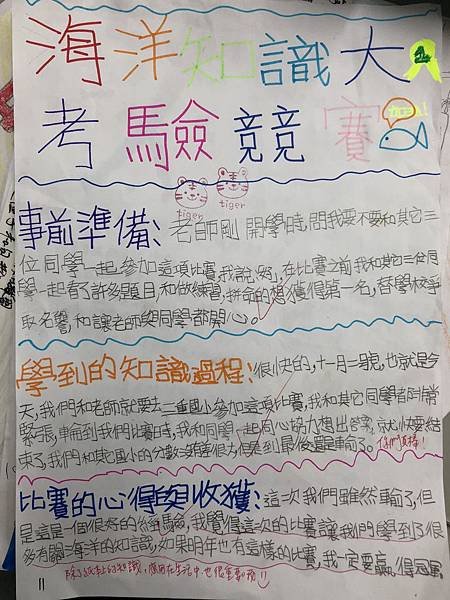 海洋知識大
考驗競賽
tiger tiger
事前準備:老師剛開學時,問我要不要和其它三
位同學一起參加這項比賽,我說:好,在比賽之前我和其它三位同
學一起看了許多題目,和做練習,拼命的想獲得第一名,替學校爭
取名譽,和讓老師與同學都開心。
學到的知識過程:很快的,十一月一號,也就是今
天,我們和老師就要去二重國小參加這項比賽,我和其它同學都非常
緊張,輪到我們比賽時,我和同學一起同心協力想出答案,就快要結
束了,我們和其它國小的分數沒有很大但是到最後還是輸了。你們真棒!
比賽的心得與收獲:這次我們雖然輸了,但
是這是一個很好的經驗,我覺得這次的比賽讓我們學到了很
多有關海洋的知識,如果明年也有這樣的比賽,我一定要贏,得冠軍
除了紙上的知識,應用在生活中也很重要喲!
11